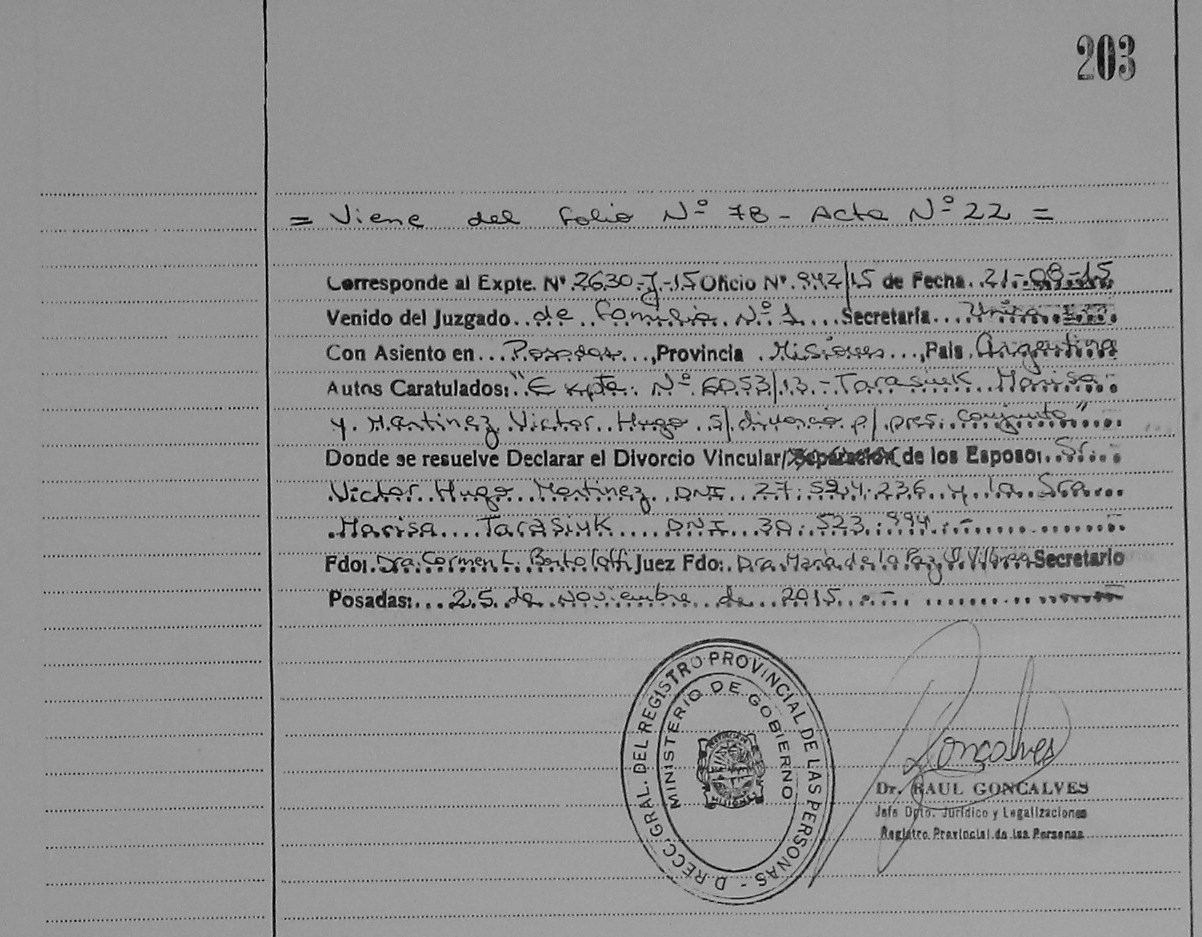 203
= Viene del folio Nº 78 - Acta Nº 22 =
Corresponde al Expte. Nº 2630-J-15 Oficio Nº 942/15 de Fecha 21-09-15
Venido del Juzgado de Familia Nº 1 Secretaría Unica
Con Asiento en Posadas, Provincia Misiones, País Argentina
Autos Caratulados: "Expte. Nº 6053/13 - Tarasiuk Marisa
y Martinez Victor Hugo s/divorcio p/pres. conjunta"
Donde se resuelve Declarar el Divorcio Vincular/Separación de los Esposos: Sr.
Victor Hugo Martinez DNI 27.594.236 y la Sra
Marisa Tarasiuk DNI 30.523.994.-
Fdo: Dra. Carmen L. Bertolotti Juez Fdo: Dra. María de la Paz Secretario
Posadas: 25 de Noviembre de 2015.-
DIRECC. GRAL. DEL REGISTRO PROVINCIAL DE LAS PERSONAS -
MINISTERIO DE GOBIERNO
Goncalves
Dr. RAUL GONCALVES
Jefe Dpto. Jurídico y Legalizaciones
Registro Provincial de las Personas